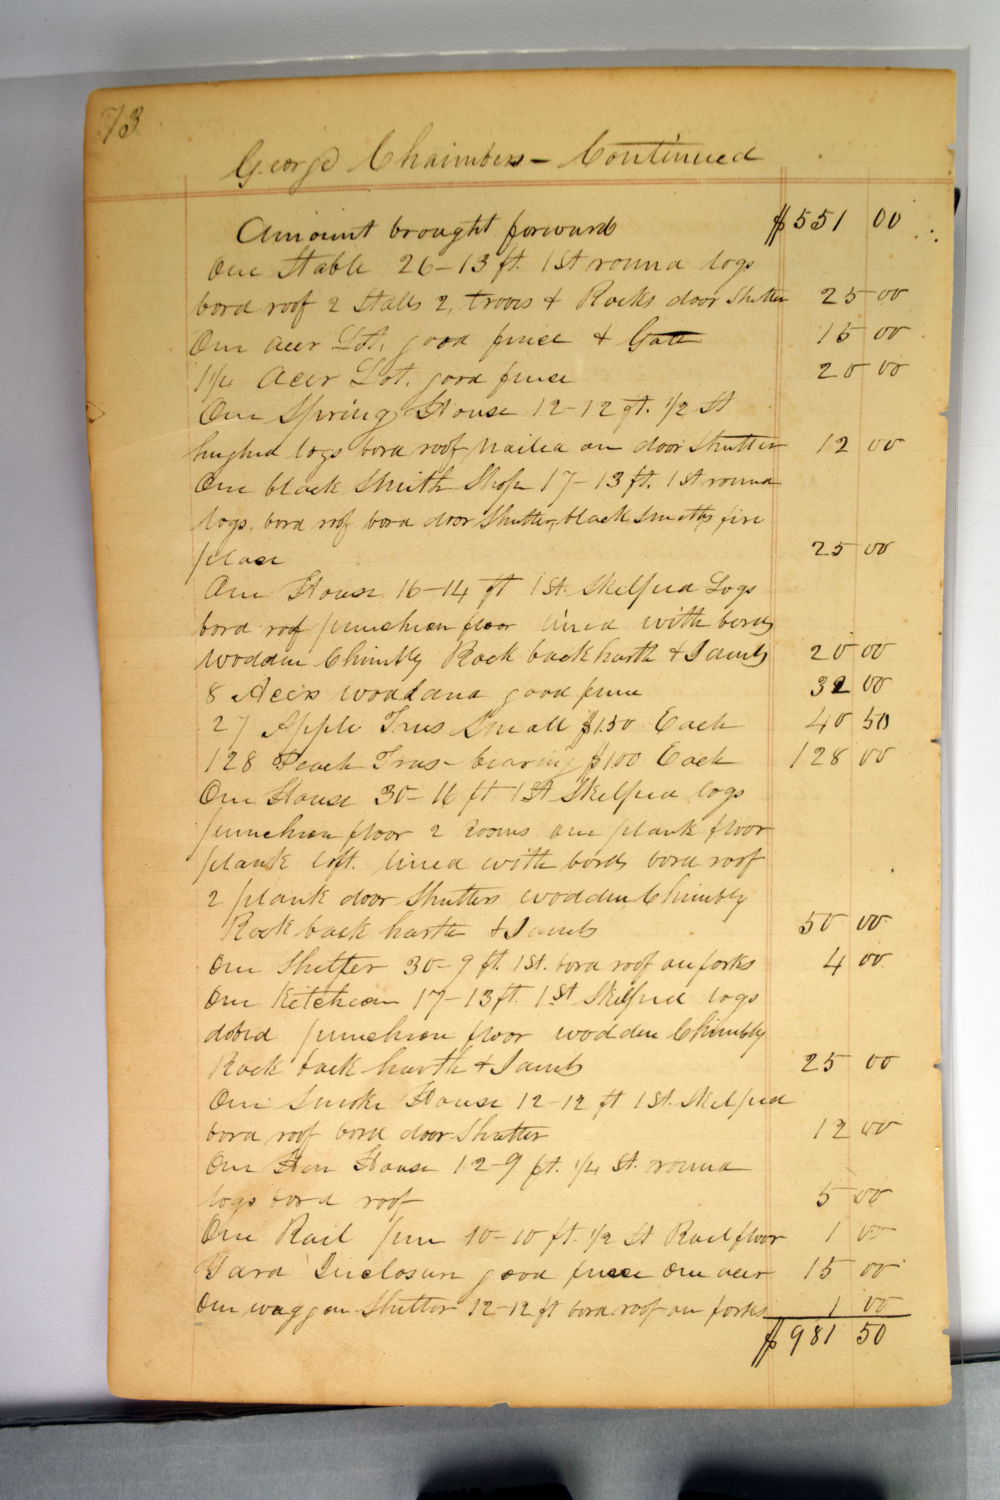 73
George Chaimbers - Continued
Amount brought forward $551 00
One Stable 26-13 ft. 1 St round logs
bord roof 2 Stalls 2, troovs & Racks door Shutter 25 00
One acer Lot, good fence & Gate 15 00
1 1/4 Acer Lot. good fence 20 00
One Spring House 12-12 ft. 1/2 St
hughed logs bord roof nailed on door Shutter 12 00
One black Smith Shop 17-13 ft. 1 St round
logs, bord roof bord door Shutter, black Smiths fire
place 25 00
One House 16-14 ft 1 St. Skelped Logs
bord roof puncheon floor lined with bords
wodden Chimbly Rock back harth & Jambs 20 00
8 Acers woodland good fence 32 00
27 Apple Trees Small $1.50 Each 40 50
128 Peach Trees - bearing $1.00 Each 128 00
One House 30-16 ft 1 St Skelped logs
puncheon floor 2 rooms one plank floor
plank loft. lined with bords bord roof
2 plank door Shutters wodden Chimbly
Rock back harth & Jambs 50 00
One Shelter 30-9 ft. 1 St. bord roof on forks 4 00
One Ketcheon 17-13 ft. 1 St Skelped logs
dobed puncheon floor wodden Chimbly
Rock back harth & Jambs 25 00
One Smoke House 12-12 ft 1 St. Skelped
bord roof bord door Shutter 12 00
One Hen House 12-9 ft. 1/4 St. round
logs bord roof 5 00
One Rail pen 10-10 ft. 1/2 St Rail floor 1 00
Yard Inclosure good fence one acer 15 00
One waggon Shelter 12-12 ft bord roof on forks 1 00
$981 50